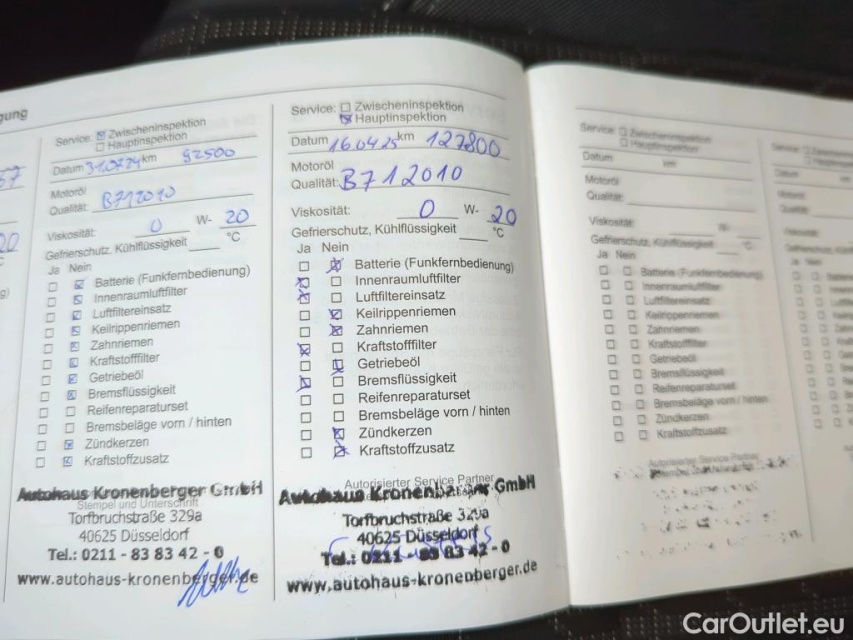 gung
Service: Zwischeninspektion
Hauptinspektion
Datum 31.07.24 km 92500
Motoröl
Qualität: B712010
Viskosität: 0 W- 20
Gefrierschutz, Kühlflüssigkeit °C
Ja Nein
Batterie (Funkfernbedienung)
Innenraumluftfilter
Luftfiltereinsatz
Keilrippenriemen
Zahnriemen
Kraftstofffilter
Getriebeöl
Bremsflüssigkeit
Reifenreparaturset
Bremsbeläge vorn / hinten
Zündkerzen
Kraftstoffzusatz
Autohaus Kronenberger GmbH
Stempel und Unterschrift
Torfbruchstraße 329a
40625 Düsseldorf
Tel.: 0211 - 83 83 42 - 0
www.autohaus-kronenberger.de
Service: Zwischeninspektion
Hauptinspektion
Datum 16.04.25 km 127800
Motoröl
Qualität: B712010
Viskosität: 0 W- 20
Gefrierschutz, Kühlflüssigkeit °C
Ja Nein
Batterie (Funkfernbedienung)
Innenraumluftfilter
Luftfiltereinsatz
Keilrippenriemen
Zahnriemen
Kraftstofffilter
Getriebeöl
Bremsflüssigkeit
Reifenreparaturset
Bremsbeläge vorn / hinten
Zündkerzen
Kraftstoffzusatz
Autorisierter Service Partner
Autohaus Kronenberger GmbH
Torfbruchstraße 329a
40625 Düsseldorf
Tel.: 0211 - 83 83 42 - 0
www.autohaus-kronenberger.de
Service: Zwischeninspektion
Hauptinspektion
Datum km
Motoröl
Qualität:
Viskosität: W-
Gefrierschutz, Kühlflüssigkeit °C
Ja Nein
Batterie (Funkfernbedienung)
Innenraumluftfilter
Luftfiltereinsatz
Keilrippenriemen
Zahnriemen
Kraftstofffilter
Getriebeöl
Bremsflüssigkeit
Reifenreparaturset
Bremsbeläge vorn / hinten
Zündkerzen
Kraftstoffzusatz
Service:
Datum
Motoröl
Qualität:
Viskosität:
Ja Nein
CarOutlet.eu